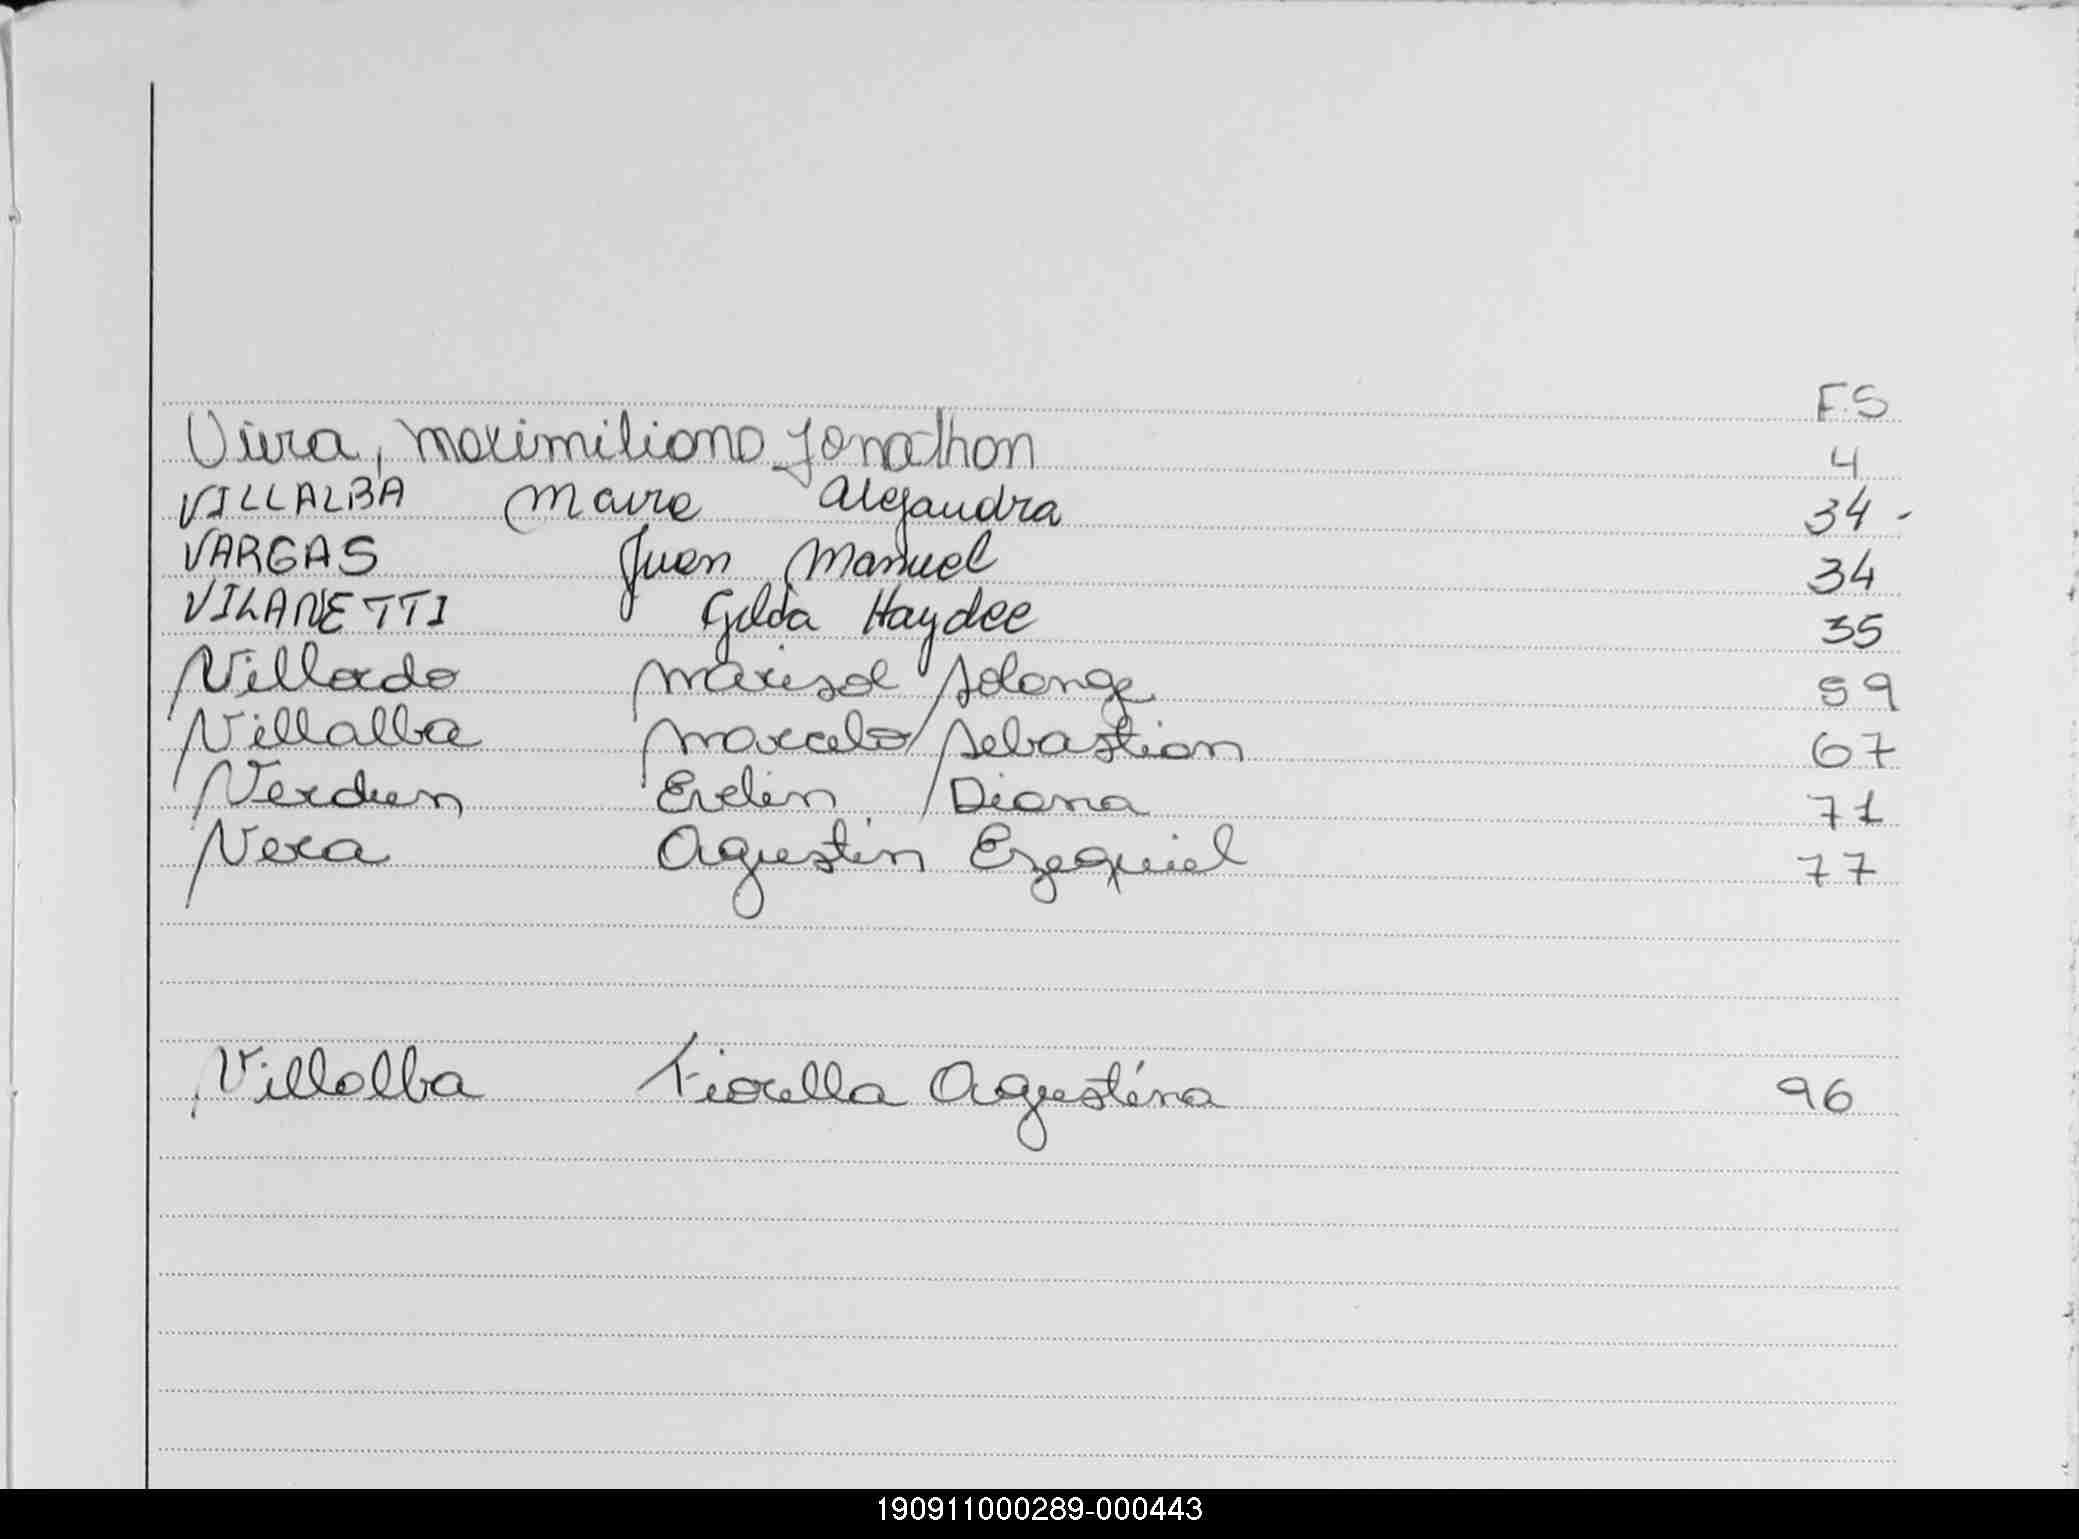 FS
Viera, Maximiliano Jonathan 4
VILLALBA Maira Alejandra 34 -
VARGAS Juan Manuel 34
VILANETTI Gilda Haydee 35
Villordo Marisol Solange 59
Villalba Marcelo Sebastian 67
Verdun Evelin Diana 71
Vera Agustin Ezequiel 77
Villalba Fiorella Agustina 96
190911000289-000443